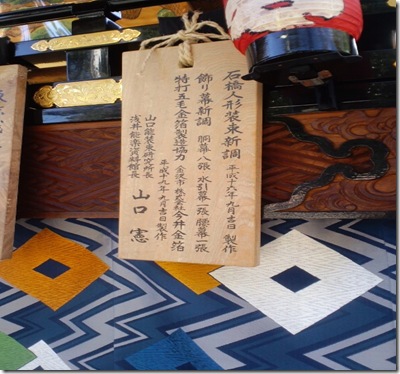 石橋人形装束新調 平成十六年九月吉日 製作
飾り幕新調 胴幕八張 水引幕一張 腰幕一張
特打五毛金箔製造協力 金沢市 株式会社 今井金箔
平成十九年九月吉日製作
山口能装束研究所長
浅井能楽資料館長
山口 憲